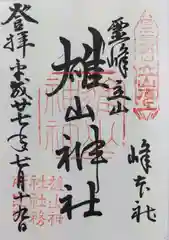 霊峰立山
峰本社
雄山神社
登拝 平成廿七年七月十九日